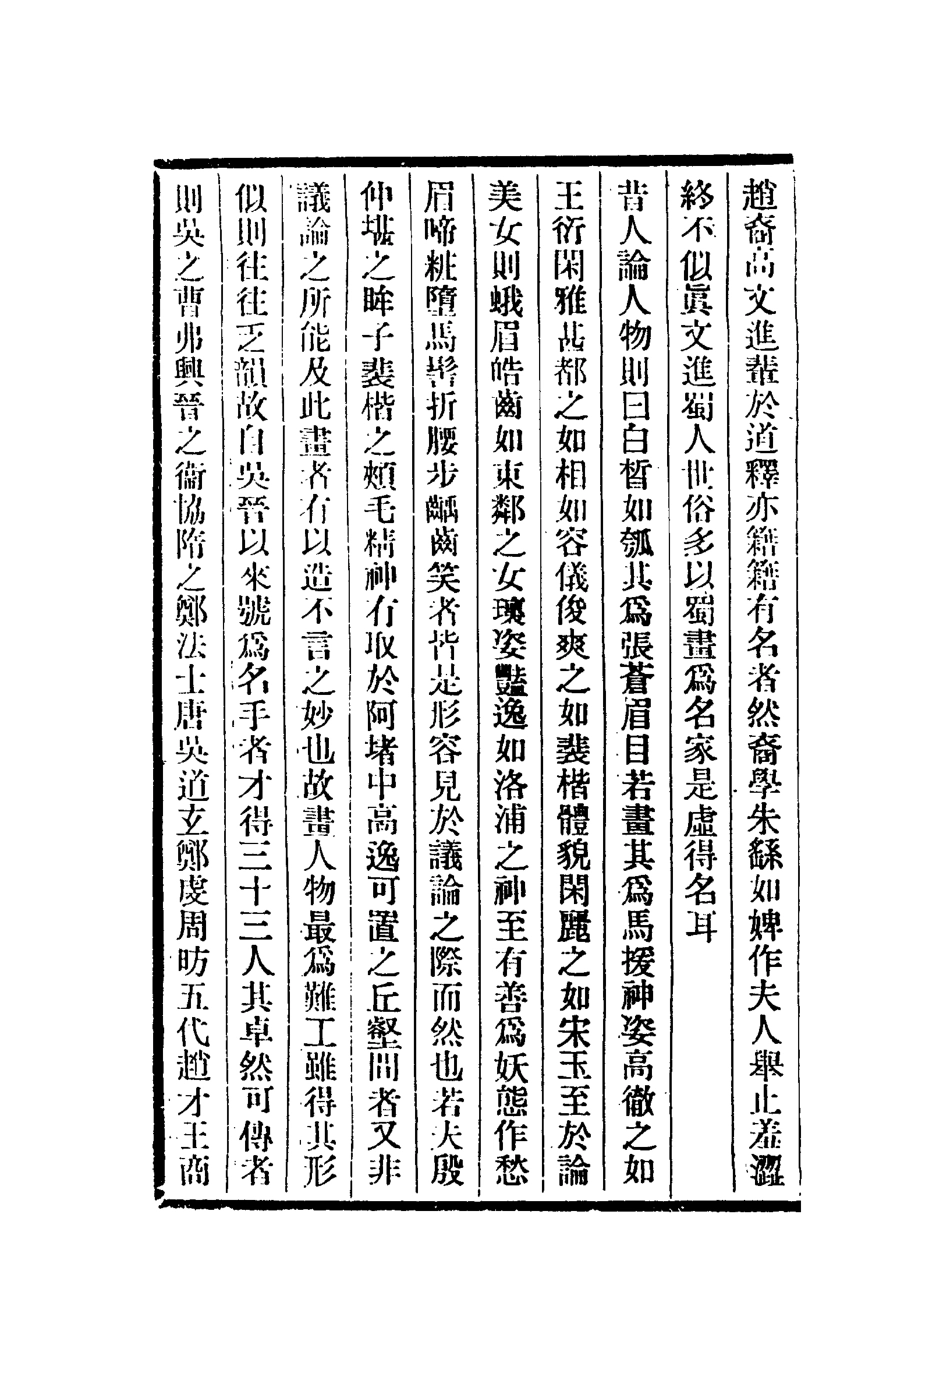 趙裔高文進輩於道釋亦籍籍有名者然裔學朱繇如婢作夫人舉止羞澀
終不似眞文進蜀人世俗多以蜀畫爲名家是虛得名耳
昔人論人物則曰白皙如瓠其爲張蒼眉目若畫其爲馬援神姿高徹之如
王衍閑雅甚都之如相如容儀俊爽之如裴楷體貌閑麗之如宋玉至於論
美女則蛾眉皓齒如東鄰之女瓌姿豔逸如洛浦之神至有善爲妖態作愁
眉啼粧墮馬髻折腰步齲齒笑者皆是形容見於議論之際而然也若夫殷
仲堪之眸子裴楷之頰毛精神有取於阿堵中高逸可置之丘壑間者又非
議論之所能及此畫者有以造不言之妙也故畫人物最爲難工雖得其形
似則往往乏韻故自吳晉以來號爲名手者才得三十三人其卓然可傳者
則吳之曹弗興晉之衞協隋之鄭法士唐吳道玄鄭虔周昉五代趙才王商